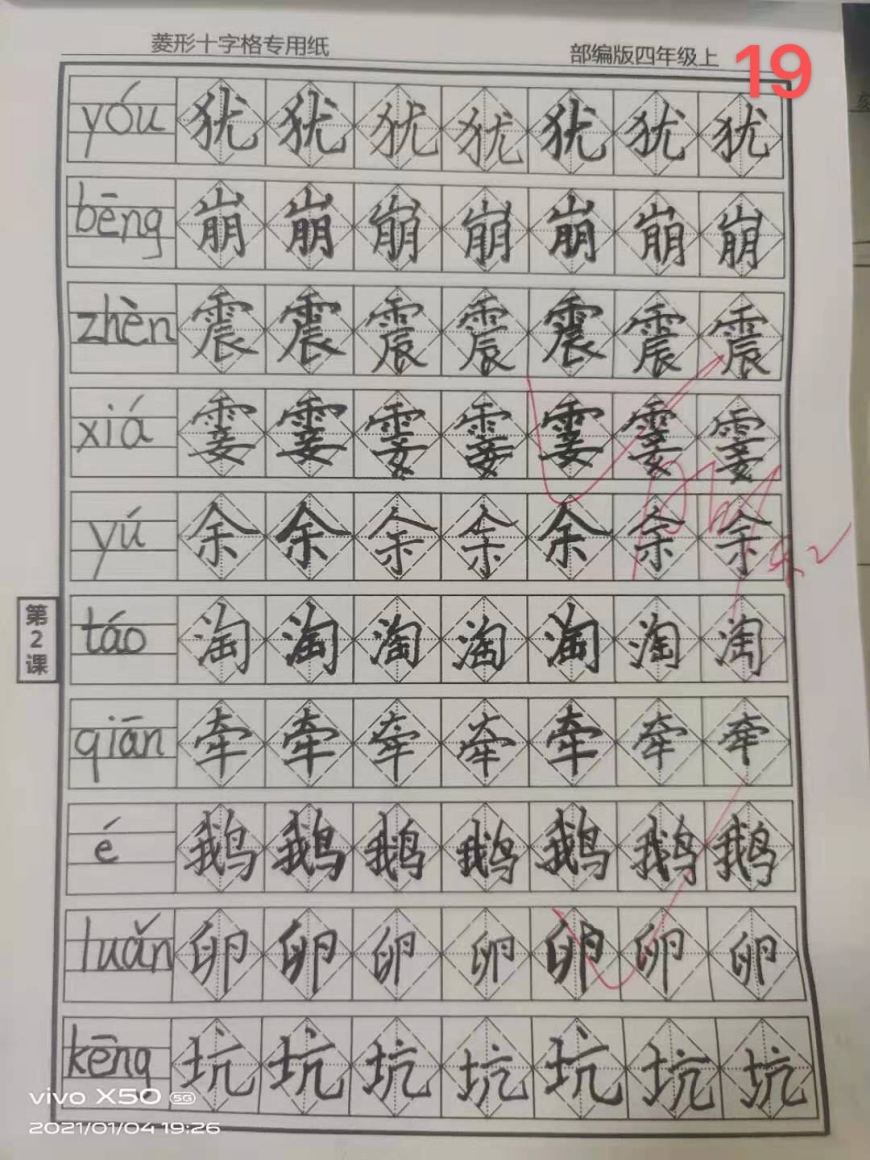 菱形十字格专用纸 部编版四年级上 19
yóu 犹 犹 犹 犹 犹 犹 犹
bēng 崩 崩 崩 崩 崩 崩 崩
zhèn 震 震 震 震 震 震 震
xiá 霎 霎 霎 霎 霎 霎 霎
yú 余 余 余 余 余 余 余
第2课
táo 淘 淘 淘 淘 淘 淘 淘
qiān 牵 牵 牵 牵 牵 牵 牵
é 鹅 鹅 鹅 鹅 鹅 鹅 鹅
luǎn 卵 卵 卵 卵 卵 卵 卵
kēng 坑 坑 坑 坑 坑 坑 坑
vivo X50 5G
2021/01/04 19:26